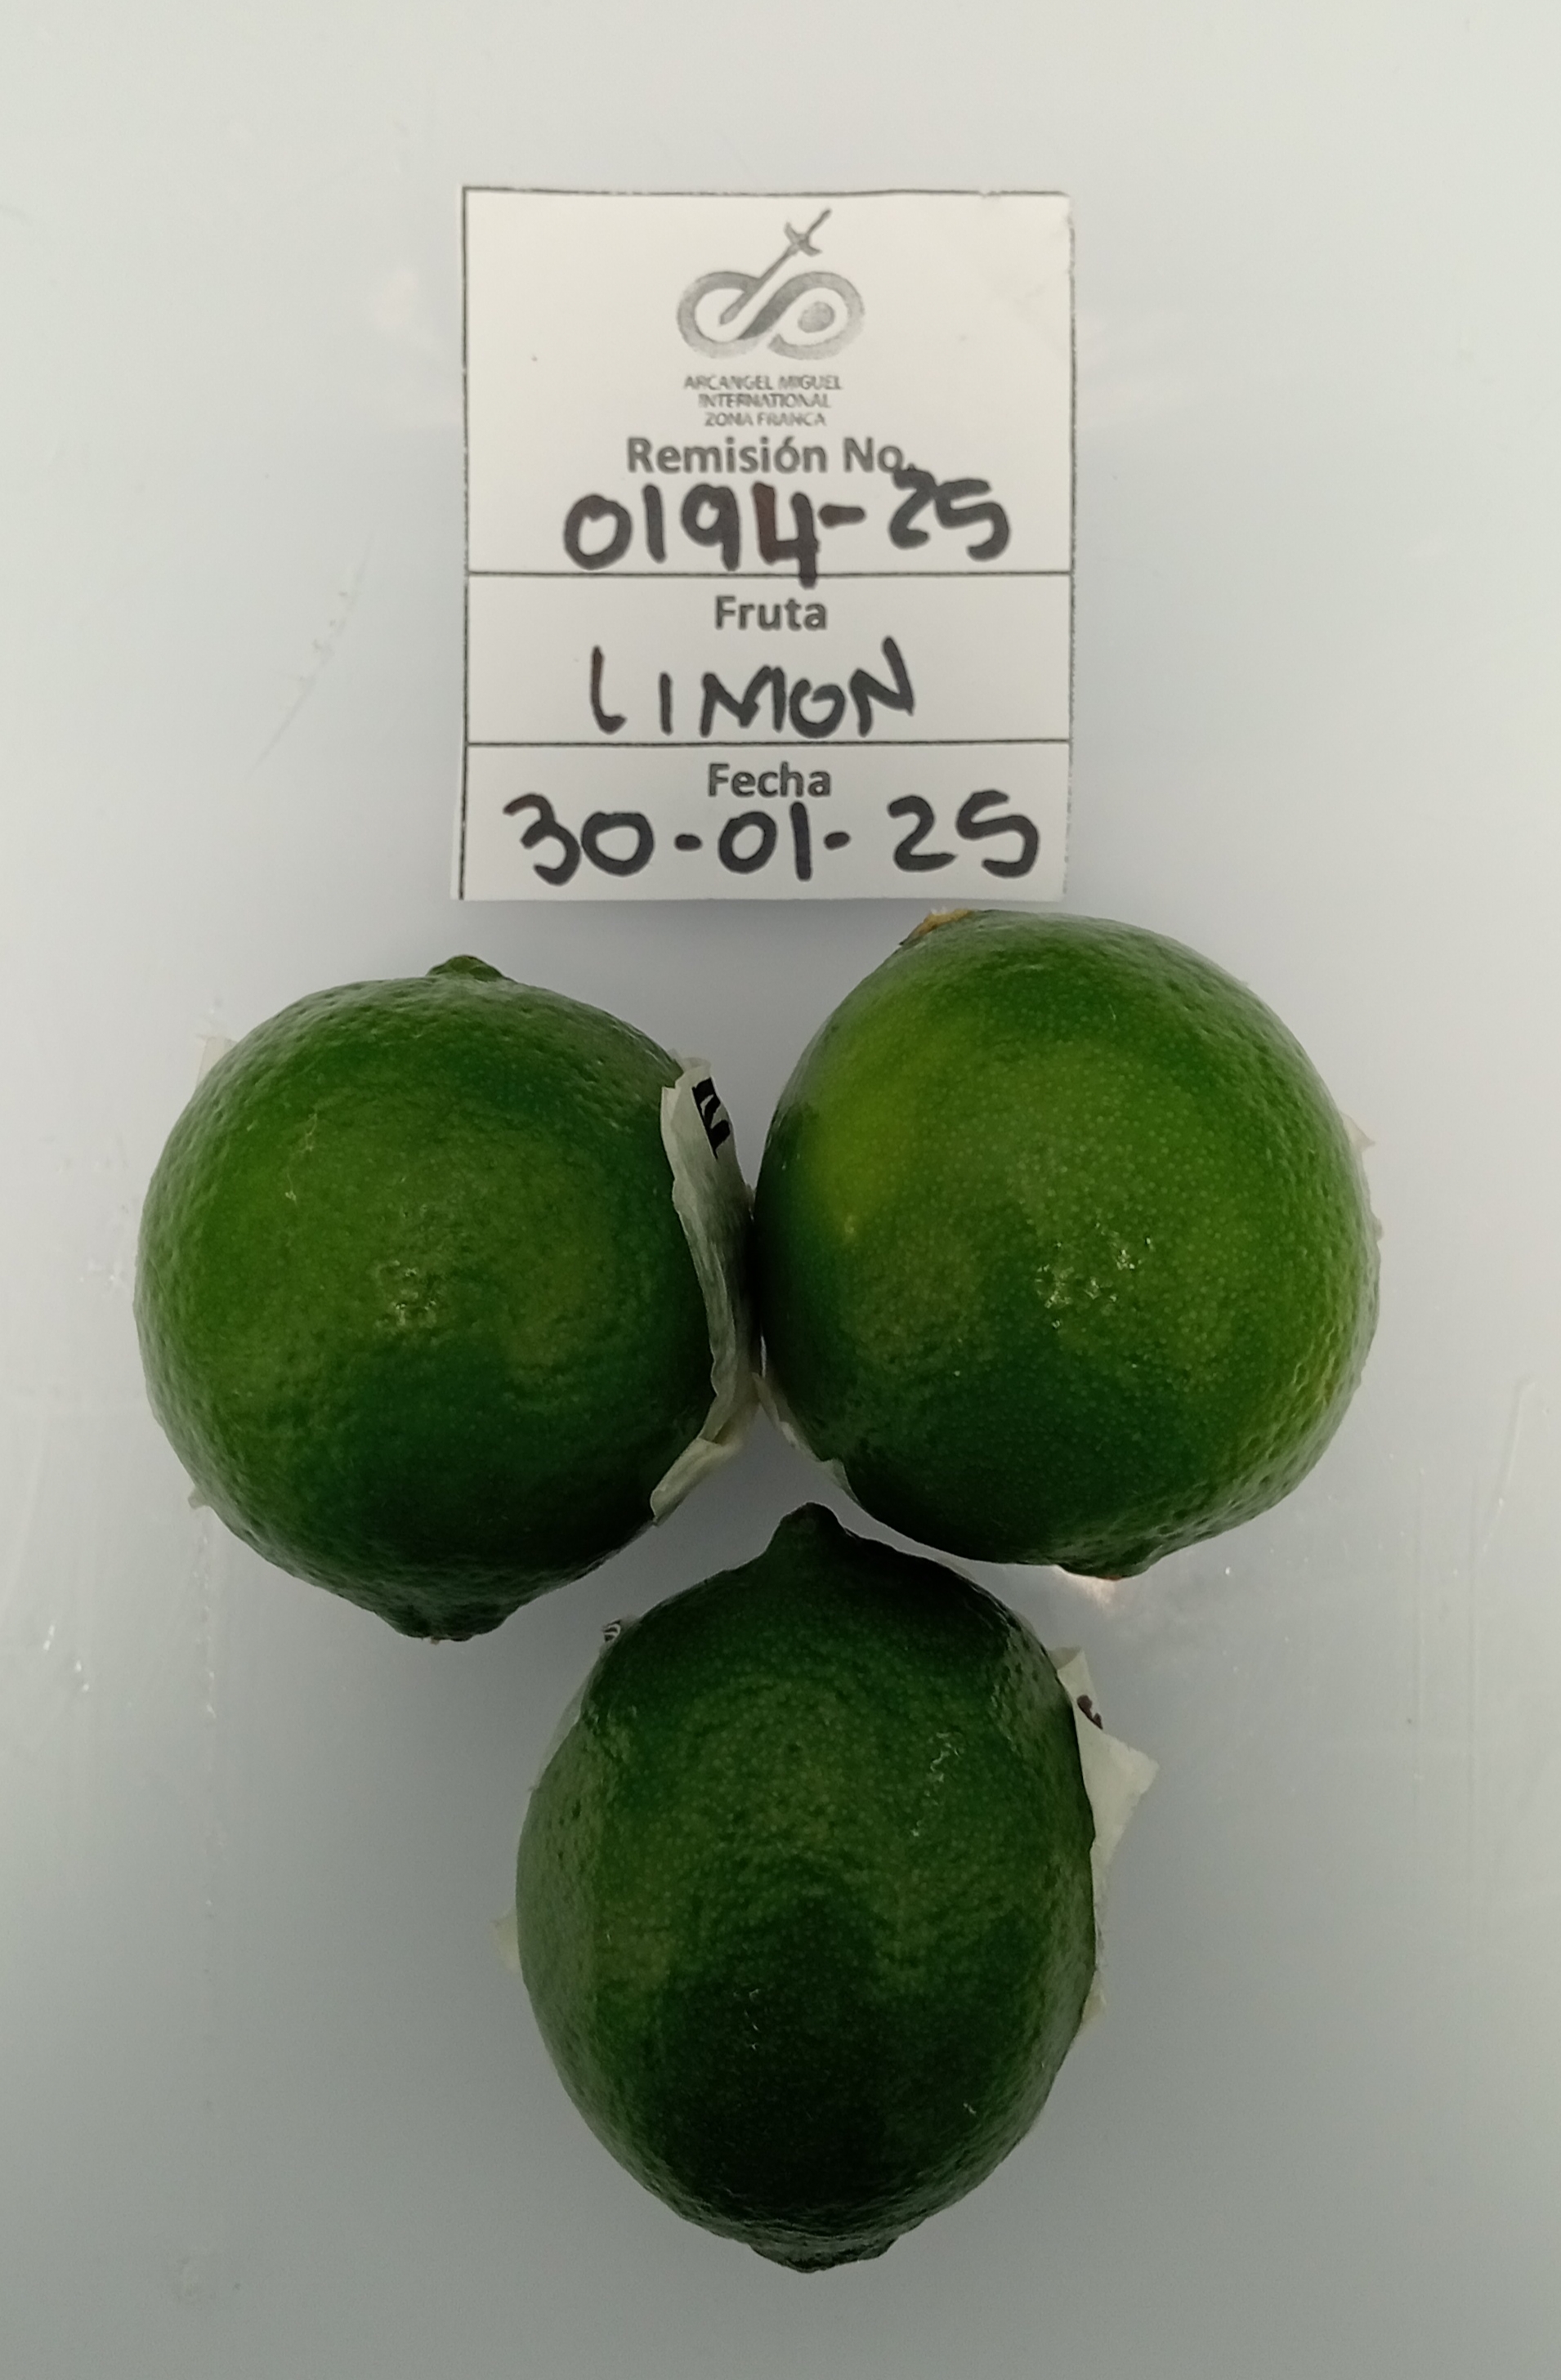 ARCANGEL MIGUEL
INTERNATIONAL
ZONA FRANCA
Remisión No.
0194-25
Fruta
LIMON
Fecha
30-01-25